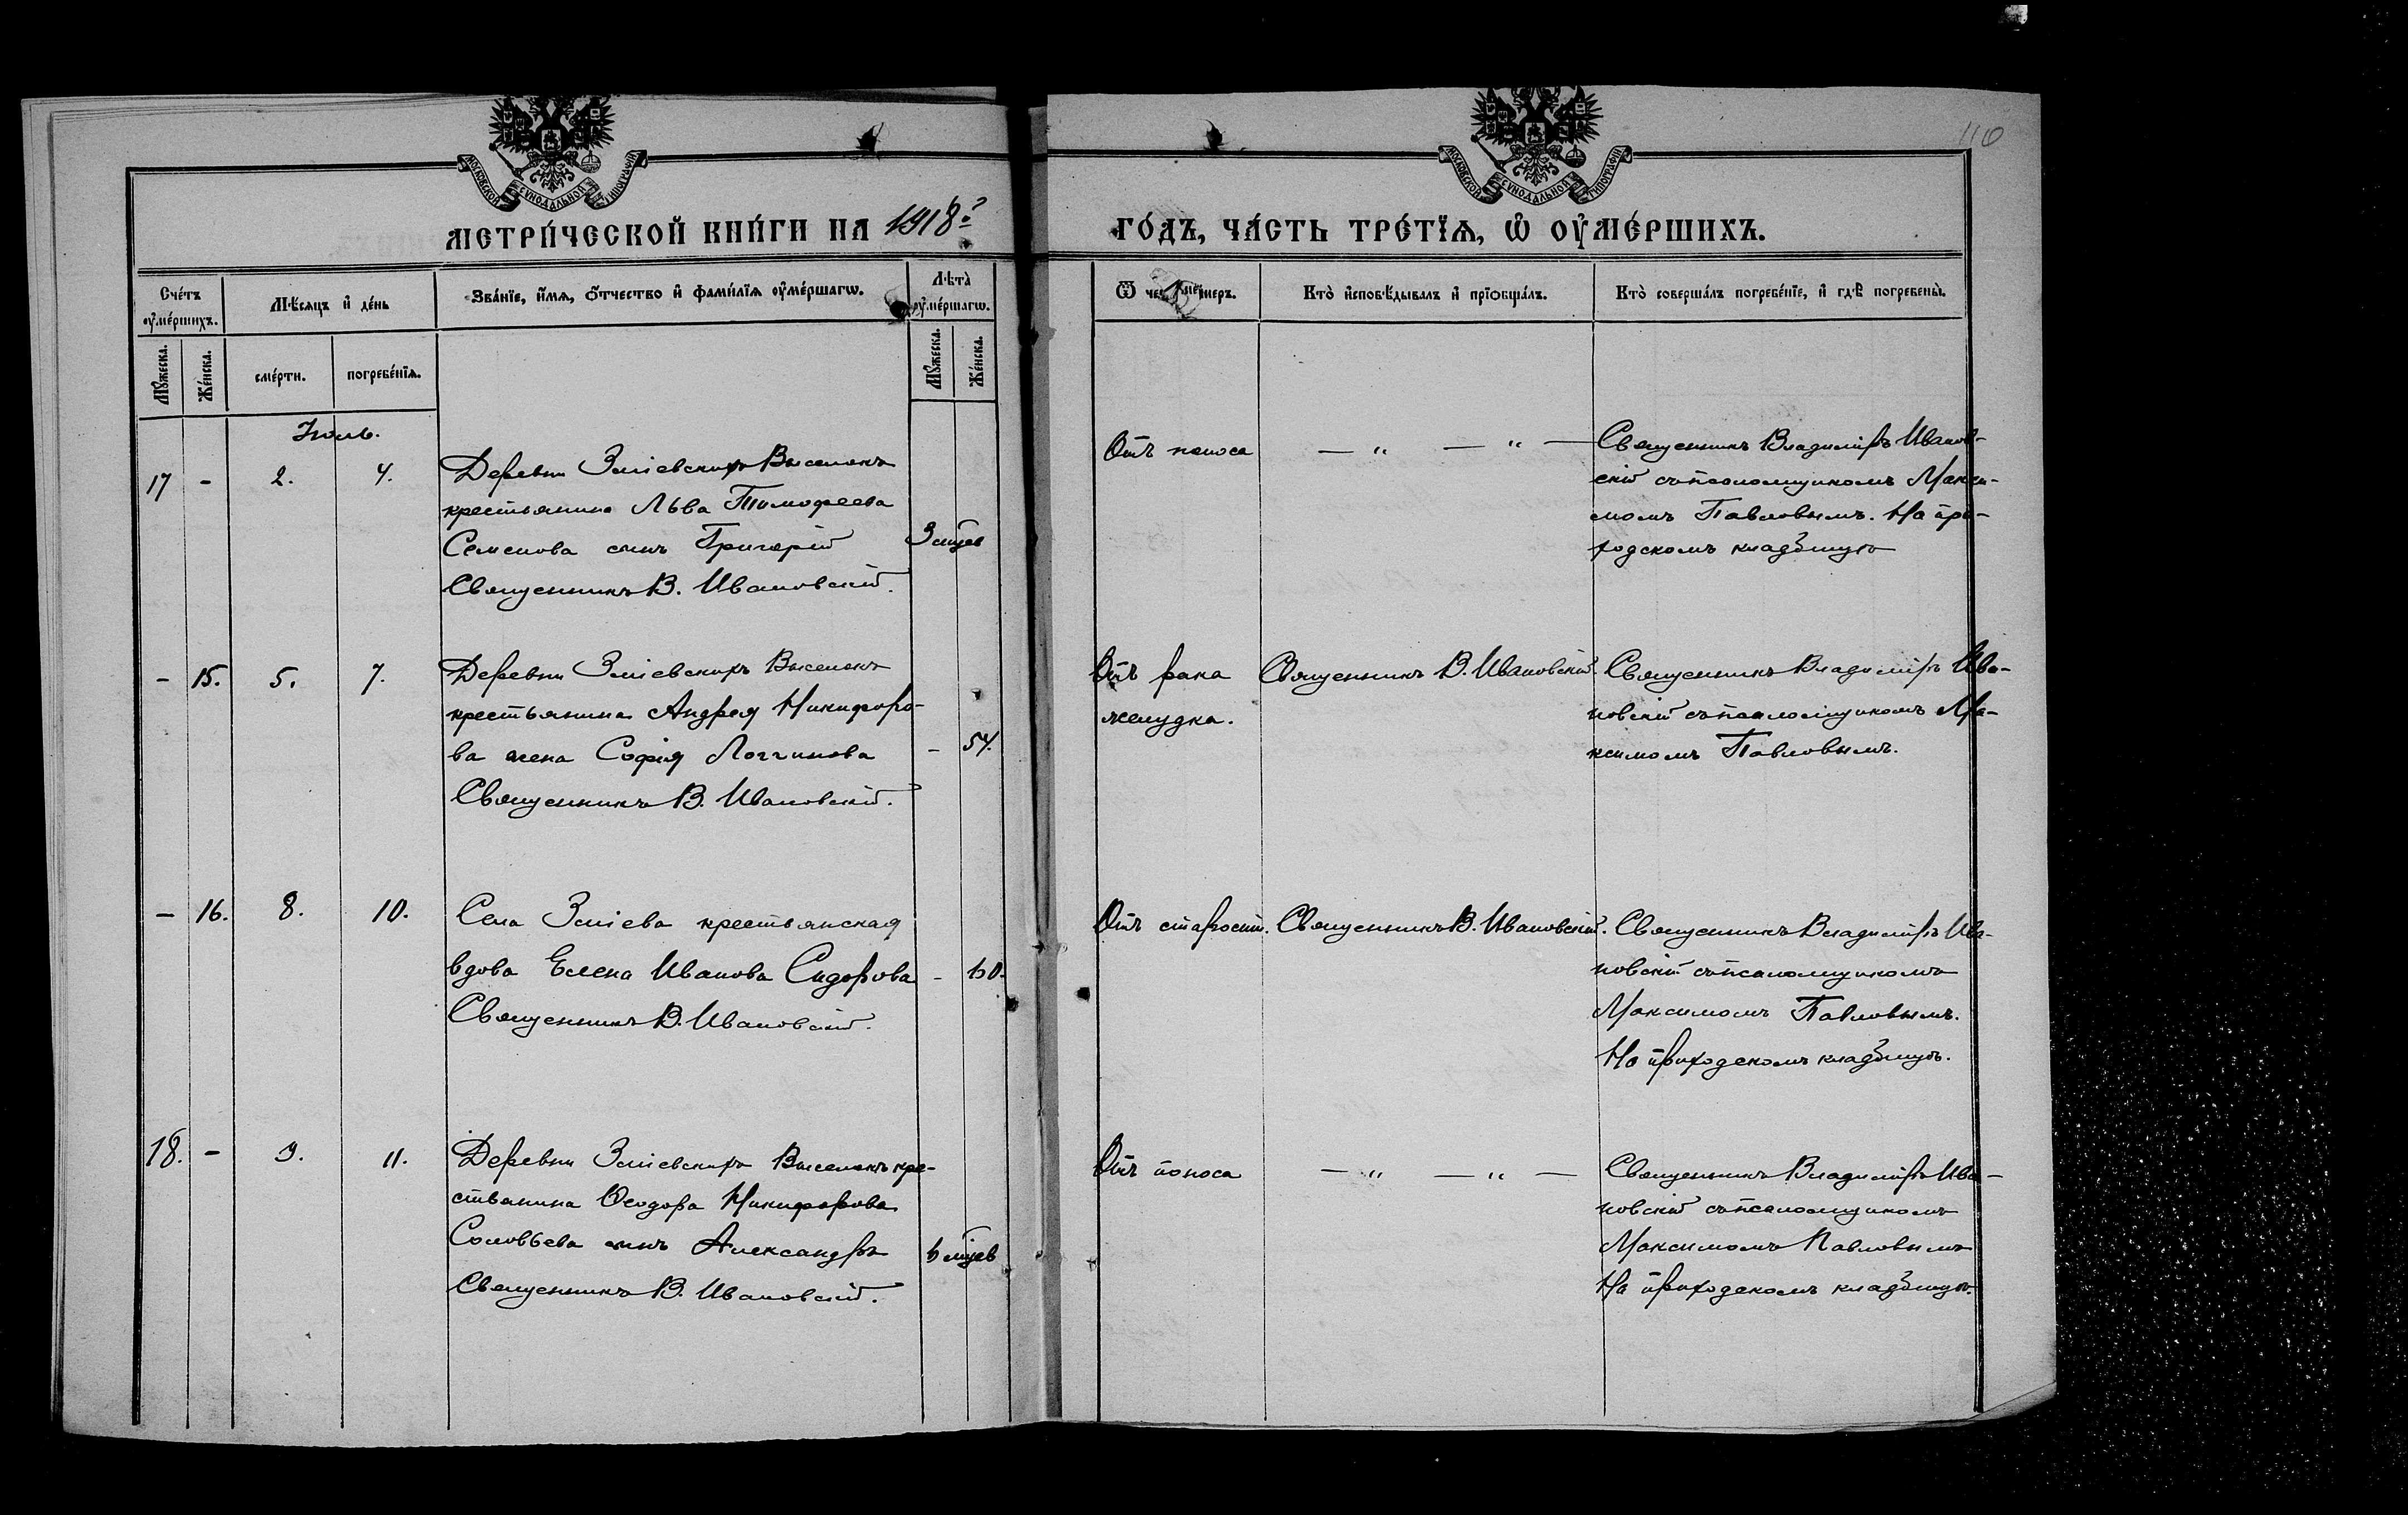 110
МОСКОВСКОЙ СѴНОДАЛЬНОЙ ТИПОГРАФІИ
МОСКОВСКОЙ СѴНОДАЛЬНОЙ ТИПОГРАФІИ
МЕТРИ́ЧЕСКОЙ КНИ́ГИ НА 1918 г.
ГО́ДЪ, ЧА́СТЬ ТРЕ́ТЇѦ, Ѡ҆ ОУ҆МЕ́РШИХЪ.
Сче́тъ оу҆ме́ршихъ.
Мѣ́сяцъ и҆ де́нь
Зва́нїе, и҆́мѧ, ѻ҆́тчество и҆ фами́лїѧ оу҆ме́ршагѡ.
Лѣ́та оу҆ме́ршагѡ.
Ѿ чегѡ̀ оу҆́меръ.
Кто̀ и҆сповѣ́дывалъ и҆ прїѡбща́лъ.
Кто̀ соверша́лъ погребе́нїе, и҆ гдѣ̀ погребены̀.
Мꙋ́жеска.
Же́нска.
сме́рти.
погребе́нїѧ.
Мꙋ́жеска.
Же́нска.
Іюль.
17 - 2. 4.
Деревни Зміевскихъ Выселокъ
крестьянина Льва Тимофеева
Семенова сынъ Григорій
Священникъ В. Ивановскій.
3 мцев
Отъ поноса
— " — " —
Священникъ Владиміръ Иванов-
скій съ псаломщикомъ Макси-
момъ Павловымъ. На при-
ходскомъ кладбищѣ
- 15. 5. 7.
Деревни Зміевскихъ Выселокъ
крестьянина Андрея Никифоро-
ва жена Софія Логгинова
Священникъ В. Ивановскій.
- 54.
Отъ рака
желудка.
Священникъ В. Ивановскій.
Священникъ Владиміръ Ива-
новскій съ псаломщикомъ Ма-
ксимомъ Павловымъ.
- 16. 8. 10.
Села Зміева крестьянская
вдова Елена Иванова Сидорова
Священникъ В. Ивановскій.
- 60.
Отъ старости.
Священникъ В. Ивановскій.
Священникъ Владиміръ Ива-
новскій съ псаломщикомъ
Максимомъ Павловымъ.
На приходскомъ кладбищѣ.
18. - 9. 11.
Деревни Зміевскихъ Выселокъ кре-
стьянина Ѳеодора Никифорова
Соловьева сынъ Александръ
Священникъ В. Ивановскій.
6 мцев
Отъ поноса
— " — " —
Священникъ Владиміръ Ива-
новскій съ псаломщикомъ
Максимомъ Павловымъ
На приходскомъ кладбищѣ.